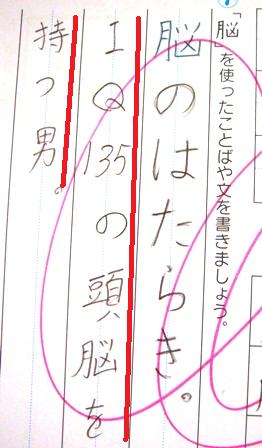 「脳」を使ったことばや文を書きましょう。
脳のはたらき。
IQ135の頭脳を
持つ男。